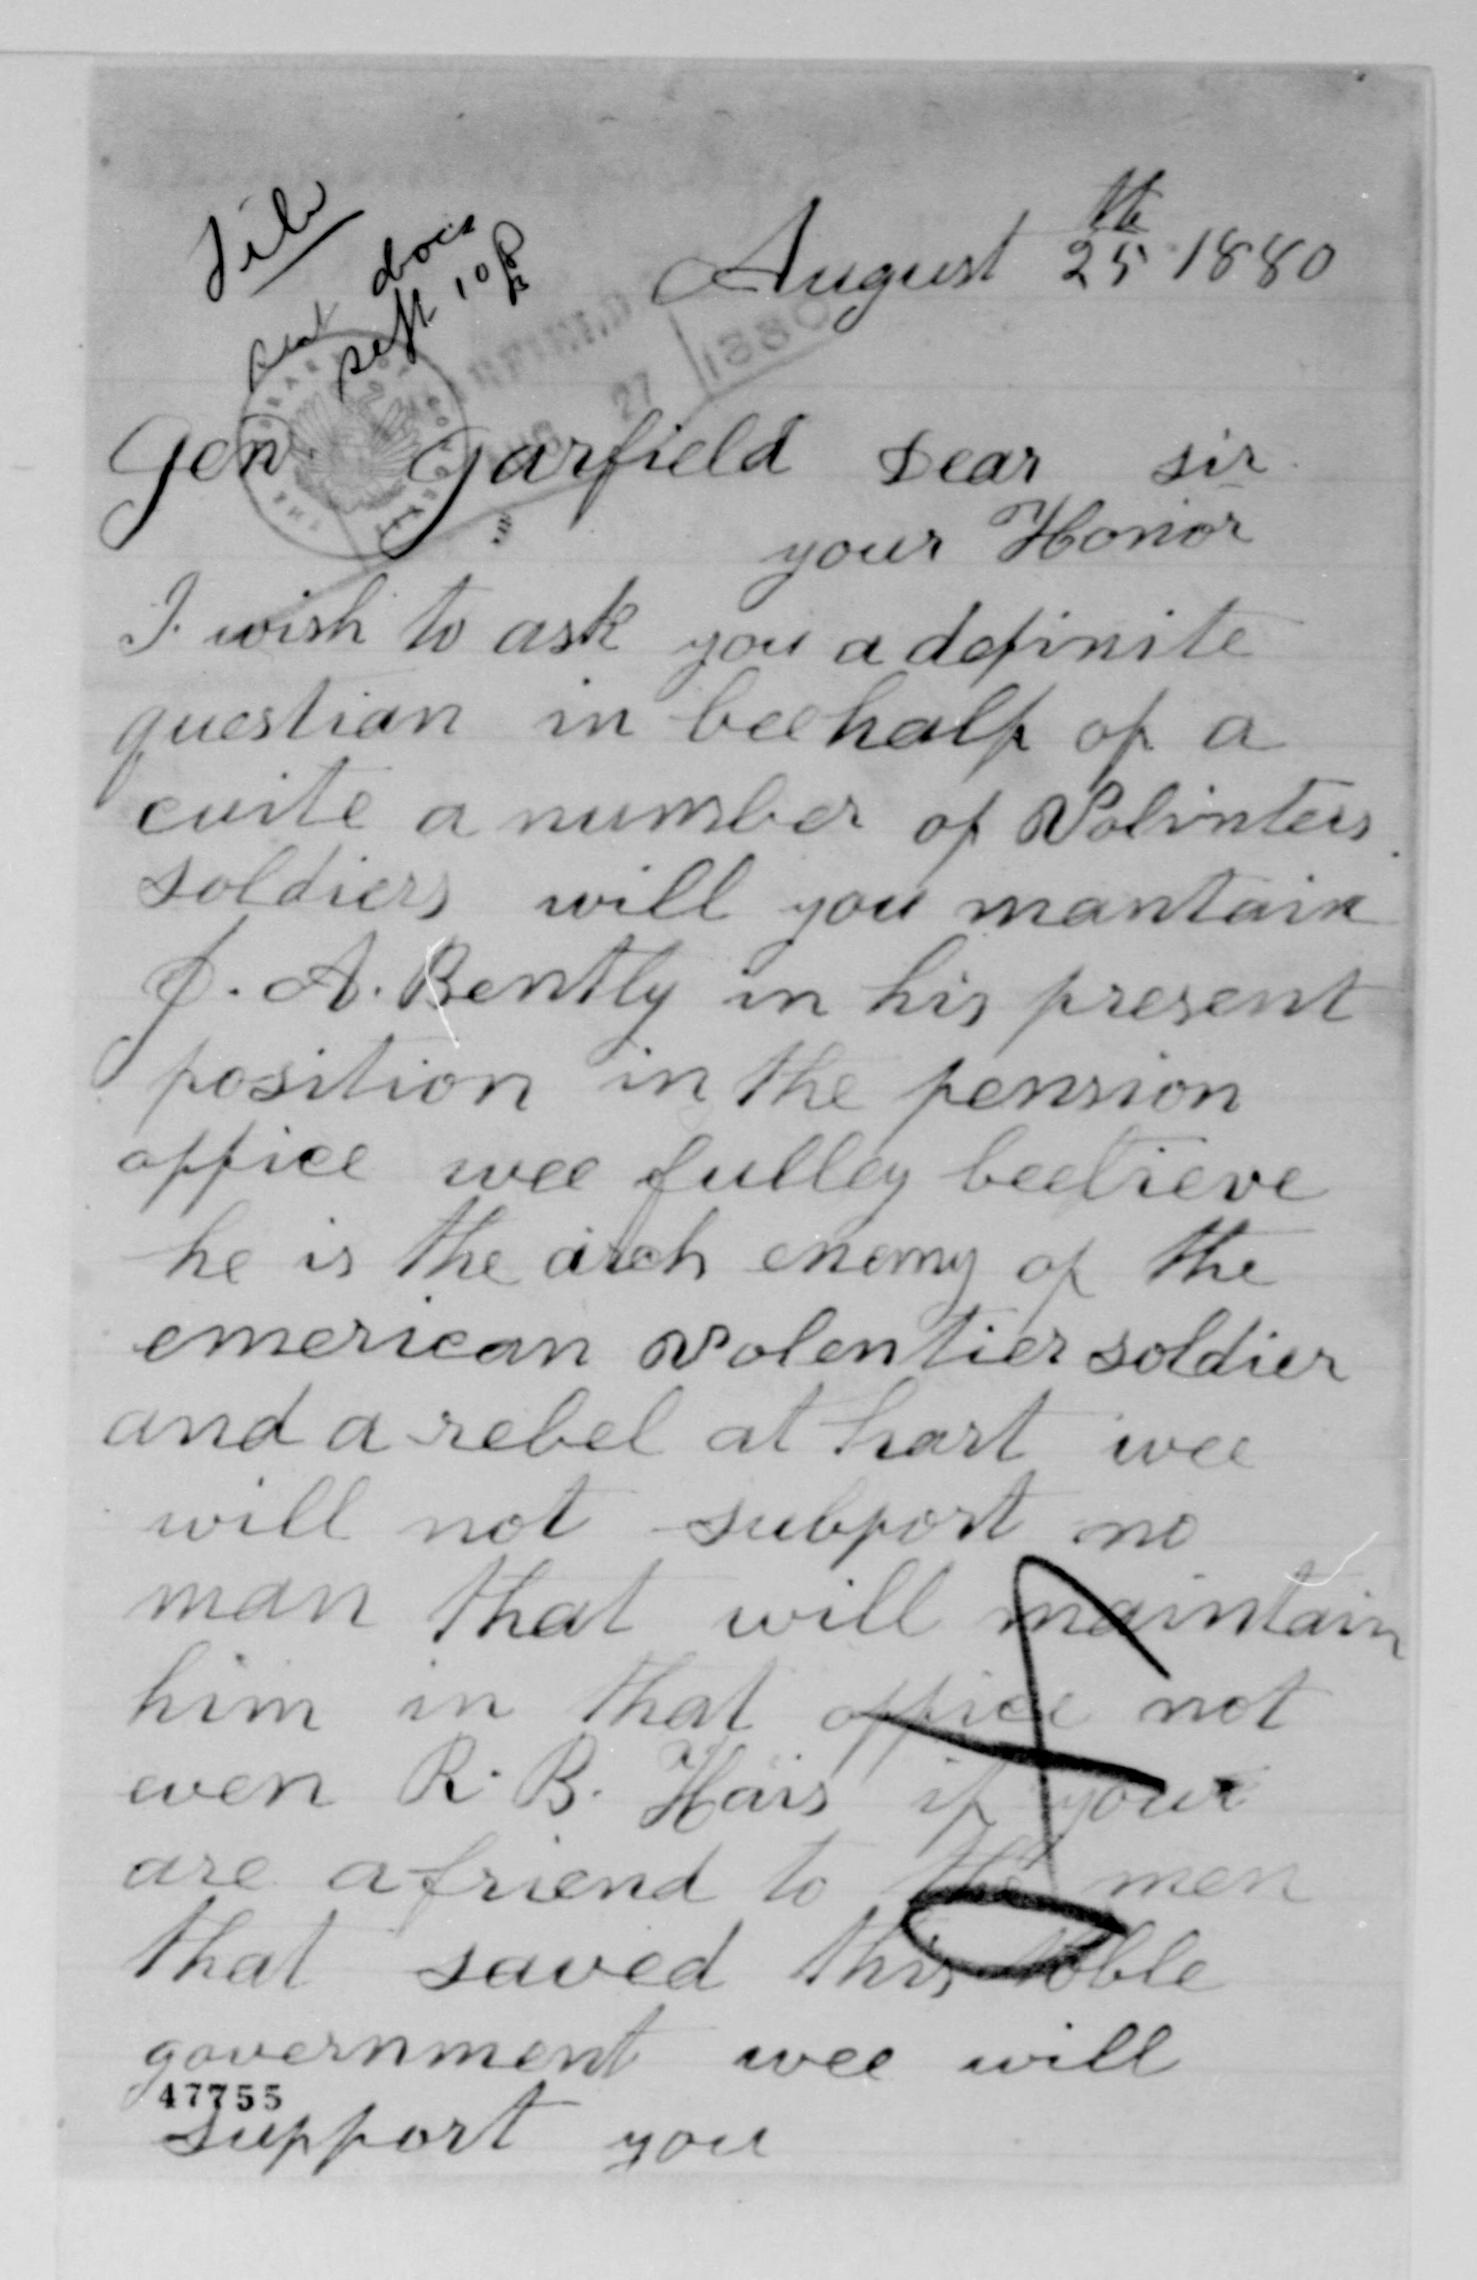 File
sent docs
Sept 10
August 25th 1880
GARFIELD
AUG 27 1880
Gen Garfield Dear sir
your Honor
I wish to ask you a definite
question in beehalf of a
cuite a number of Volinters
soldiers will you mantain
J. A. Bently in his present
position in the pension
office wee fulley beelieve
he is the arch enemy of the
emerican volentier soldier
and a rebel at hart wee
will not subport no
man that will maintain
him in that office not
even R. B. Hais if your
are a friend to the men
that saved this noble
government wee will
47755
support you